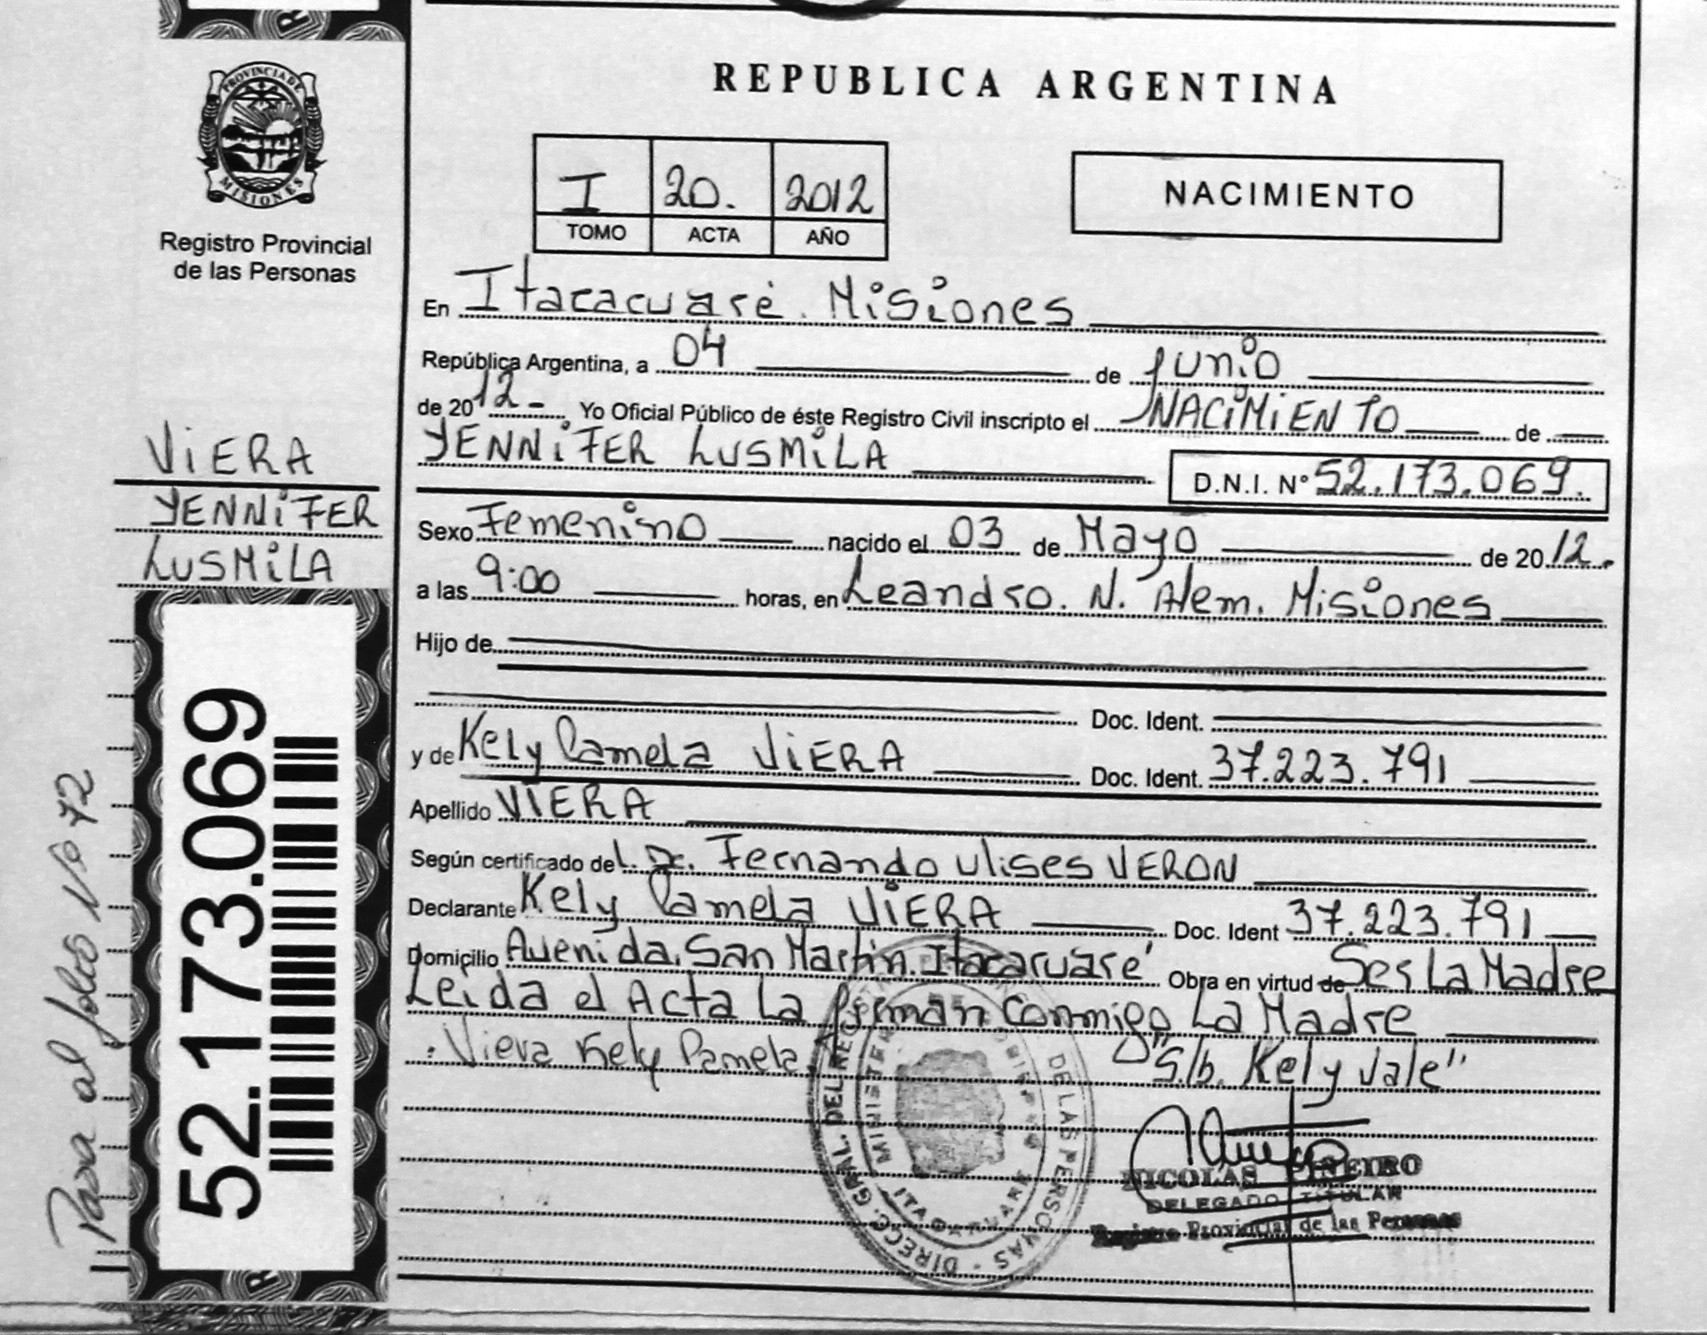 PROVINCIA DE
MISIONES
Registro Provincial
de las Personas
VIERA
YENNIFER
LUSMILA
52.173.069
Pasa al folio Nº 72
REPUBLICA ARGENTINA
I 20. 2012
TOMO ACTA AÑO
NACIMIENTO
En Itacaruaré. Misiones
República Argentina, a 04 de Junio
de 2012- Yo Oficial Público de éste Registro Civil inscripto el NACIMIENTO de
YENNIFER LUSMILA D.N.I. N° 52.173.069.
Sexo Femenino nacido el 03 de Mayo de 2012.
a las 9:00 horas, en Leandro. N. Alem. Misiones
Hijo de
Doc. Ident.
y de Kely Pamela VIERA Doc. Ident. 37.223.791
Apellido VIERA
Según certificado del. Dr. Fernando Ulises VERON
Declarante Kely Pamela VIERA Doc. Ident 37.223.791
Domicilio Avenida. San Martín. Itacaruaré Obra en virtud de Ser La Madre
Leida el Acta La firman conmigo La Madre
Viera Kely Pamela "S/b. Kely Vale"
NICOLAS PIÑEIRO
DELEGADO TITULAR
Registro Provincial de las Personas
DIRECC. GRAL. DEL REG. DE LAS PERSONAS
MINISTERIO
ITACARUARE